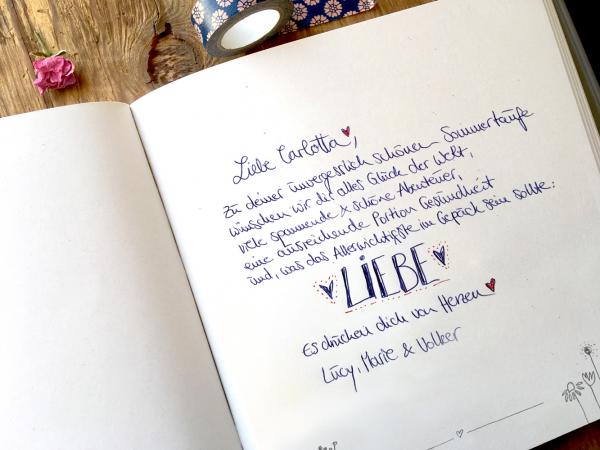 Liebe Carlotta,
zu deiner unvergesslich schönen Sommertaufe
wünschen wir dir alles Glück der Welt,
viele spannende & schöne Abenteuer,
eine ausreichende Portion Gesundheit
und, was das Allerwichtigste im Gepäck sein sollte:
LIEBE
Es drücken dich von Herzen
Lucy, Marie & Volker